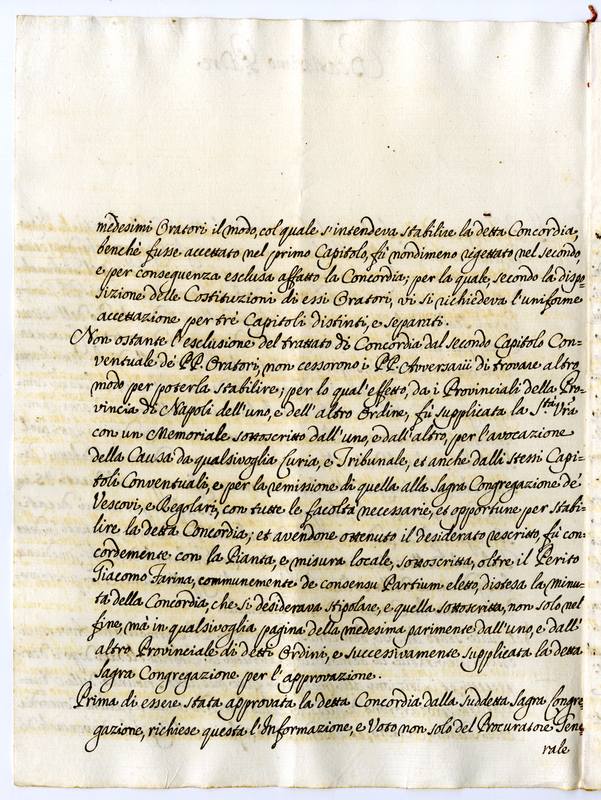 medesimi Oratori il modo, col quale s'intendeva stabilire la detta Concordia,
benchè fusse accettato nel primo Capitolo, fù nondimeno rigettato nel secondo,
e per consequenza esclusa affatto la Concordia; per la quale, secondo la dispo=
sizione delle Costituzioni di essi Oratori, vi si richiedeva l'uniforme
accettazione per trè Capitoli distinti, e separati.
Non ostante l'esclusione del trattato di Concordia dal secondo Capitolo Con=
ventuale de PP. Oratori, non cessorono i PP. Avversarii di trovare altro
modo per poterla stabilire; per lo qual'effetto, da i Provinciali della Pro=
vincia di Napoli dell'uno, e dell'altro Ordine, fù supplicata la Stà Vrã
con un Memoriale sottoscritto dall'uno, e dall'altro, per l'avocazione
della Causa da qualsivoglia Curia, e Tribunale, et anche dalli stessi Capi=
toli Conventuali, e per la remissione di quella alla Sagra Congregazione de'
Vescovi, e Regolari, con tutte le facoltà necessarie, et opportune per stabi=
lire la detta Concordia; et avendone ottenuto il desiderato rescritto, fù con=
cordemente con la Pianta, e misura locale, sottoscritta, oltre il Perito
Giacomo Farina, communemente de consensu Partium eletto, distesa la minu=
ta della Concordia, che si desiderava stipolare, e quella sottoscritta, non solo nel
fine, mà in qualsivoglia pagina della medesima parimente dall'uno, e dall'
altro Provinciale di detti Ordini, e successivamente supplicata la detta
Sagra Congregazione per l'approvazione.
Prima di essere stata approvata la detta Concordia dalla suddetta Sagra Congre=
gazione, richiese questa l'Informazione, e Voto non solo del Procuratore Gene=
rale